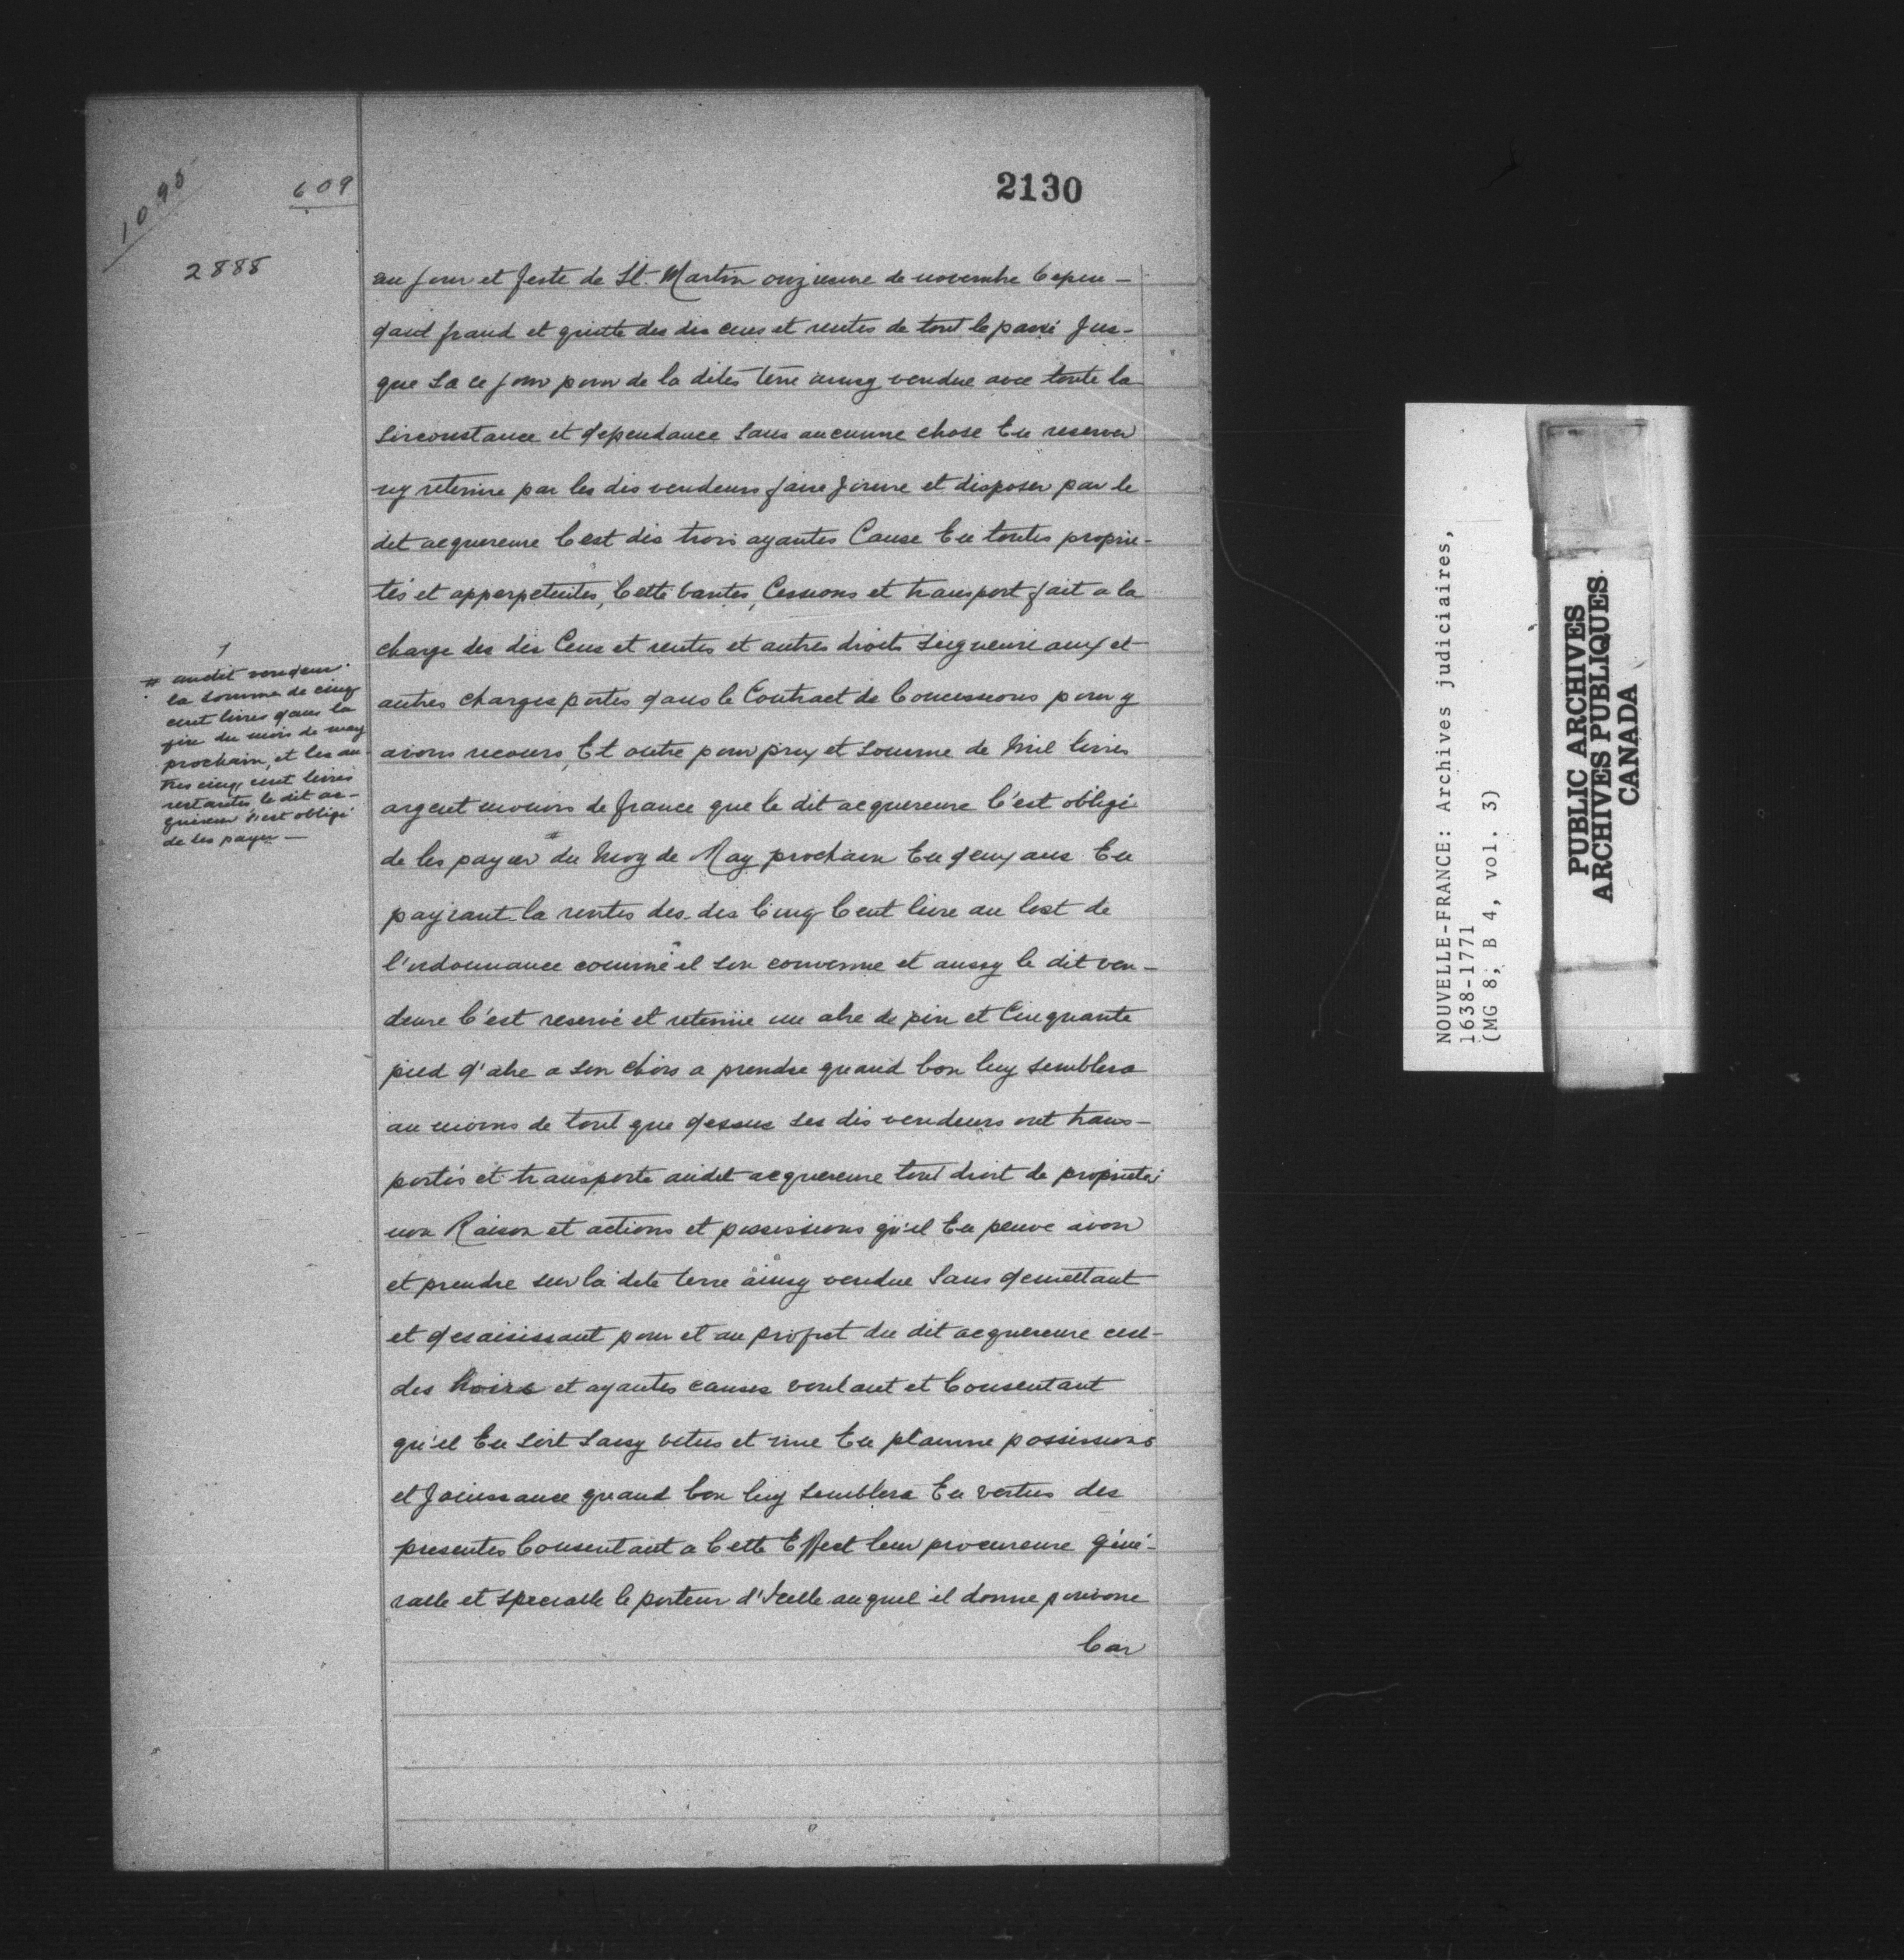 1095
609
2130
2888
au jour et feste de St. Martin onzieume de novembre Cepen-
dant fraud et quitte des dis cens et rentes de tout le passé Jus-
que Sa ce jour pour de la dites terre ainsy vendue avec toute la
Sirconstance et dependance Sans aucunne chose En reserver
ny retenire par les dis vendeurs faire Joiure et disposer par le
dit acquereure C est dis trois ayantes Cause En toutes proprie-
tés et apperpetuites, Cette vantes, Cessions et transport fait a la
charge des dis Cens et rentes et autres droits Seigneuriaux et
autres charges portes dans le Contract de Concessions pour y
avoirs recours, Et outre pour prix et Somme de Mil livres
argent monois de france que le dit acquereure C'est obligé
de les payer # du Moy de May prochain En deux ans En
payiant la rentes des dis Cinq Cent livre au Cost de
l'ordonnance comme il son convenue et aussy le dit ven-
deure C'est reservé et retenüe un abre de pin et Cinquante
pied d'abre a son chois a prendre quand bon luy semblera
au moins de tout que dessus Les dis vendeurs ont trans-
portés et transporte audit acquereure tout droit de proprieté
non Raison et actions et possessions qu'il En peuve avoir
et prendre sur la dite terre ainsy vendue Sans demettant
et desaisissant pour et au profict du dit acquereure cest
des hoirs et ayantes causes voulant et Consentant
qu'il En Soit Saisy vetus et mue En plainne possessions
et Jouissance quand bon luy Semblera En vertus des
presentes Consentant a Cette Effect leur procureure géné-
ralle et specialle le porteur d'Icelle auquel il donne pouvoire
Car
# audit vendeur
la somme de cinq
cent livres dans la
fin du mois de may
prochain, et les au-
tres cinq cent livres
restantes le dit ac-
quereur s'est obligé
de les payer —
NOUVELLE-FRANCE: Archives judiciaires,
1638-1771
(MG 8, B 4, vol. 3)
PUBLIC ARCHIVES
ARCHIVES PUBLIQUES
CANADA